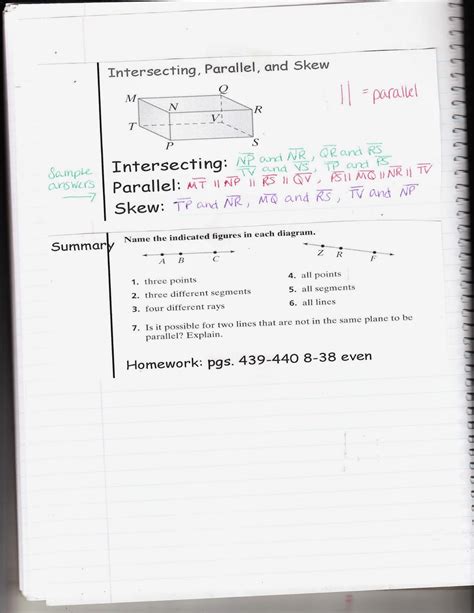 Intersecting, Parallel, and Skew
|| = parallel
M
Q
N
R
T
V
P
S
Sample answers →
Intersecting: NP and NR, QR and RS
TV and VS, TP and PS
Parallel: MT || NP || RS || QV, PS || MQ || NR || TV
Skew: TP and NR, MQ and RS, TV and NP
Summary
Name the indicated figures in each diagram.
A B C
Z R F
1. three points
2. three different segments
3. four different rays
4. all points
5. all segments
6. all lines
7. Is it possible for two lines that are not in the same plane to be
parallel? Explain.
Homework: pgs. 439-440 8-38 even